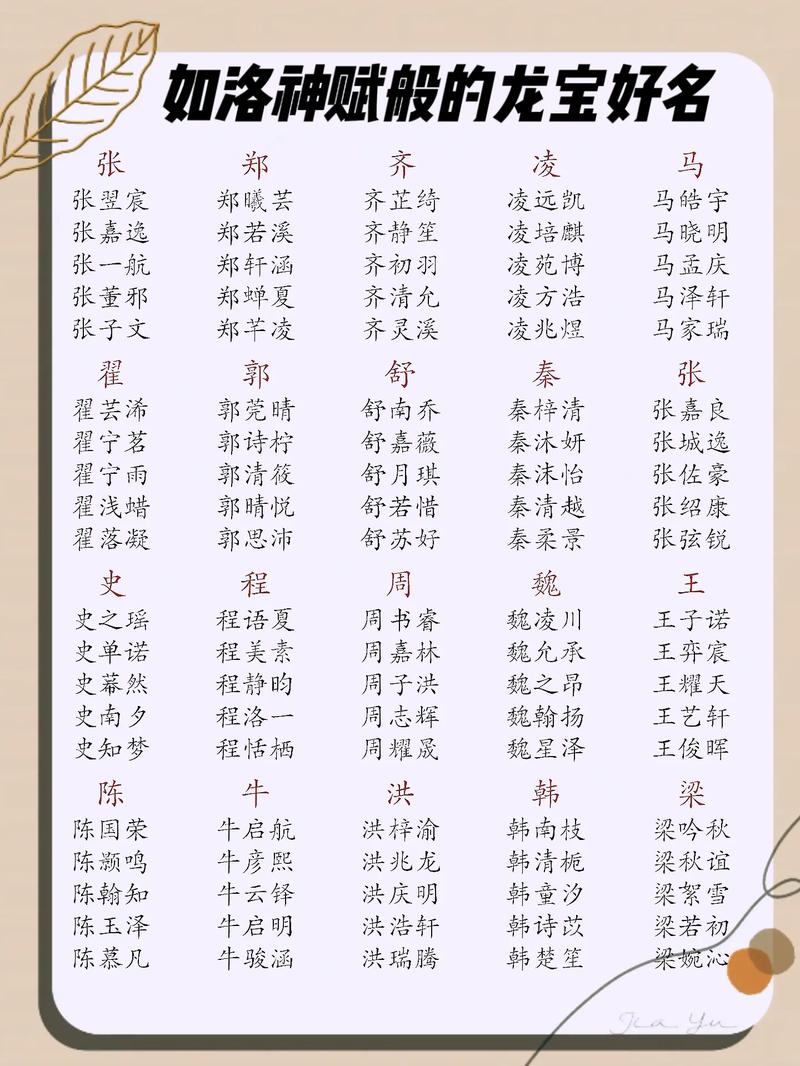 如洛神赋般的龙宝好名
张 郑 齐 凌 马
张翌宸 郑曦芸 齐芷绮 凌远凯 马皓宇
张嘉逸 郑若溪 齐静笙 凌培麒 马晓明
张一航 郑轩涵 齐初羽 凌苑博 马孟庆
张董邪 郑蝉夏 齐清允 凌方浩 马泽轩
张子文 郑芊凌 齐灵溪 凌兆煜 马家瑞
翟 郭 舒 秦 张
翟芸浠 郭莞晴 舒南乔 秦梓清 张嘉良
翟宁茗 郭诗柠 舒嘉薇 秦沐妍 张城逸
翟宁雨 郭清筱 舒月琪 秦沫怡 张佐豪
翟浅蜡 郭晴悦 舒若惜 秦清越 张绍康
翟落凝 郭思沛 舒苏好 秦柔景 张弦锐
史 程 周 魏 王
史之瑶 程语夏 周书睿 魏凌川 王子诺
史单诺 程美素 周嘉林 魏允承 王弈宸
史幕然 程静昀 周子洪 魏之昂 王耀天
史南夕 程洛一 周志辉 魏翰扬 王艺轩
史知梦 程恬栖 周耀晟 魏星泽 王俊晖
陈 牛 洪 韩 梁
陈国荣 牛启航 洪梓渝 韩南枝 梁吟秋
陈颢鸣 牛彦熙 洪兆龙 韩清栀 梁秋谊
陈翰知 牛云铎 洪庆明 韩童汐 梁絮雪
陈玉泽 牛启明 洪浩轩 韩诗苡 梁若初
陈慕凡 牛骏涵 洪瑞腾 韩楚笙 梁婉沁
Jia Yu